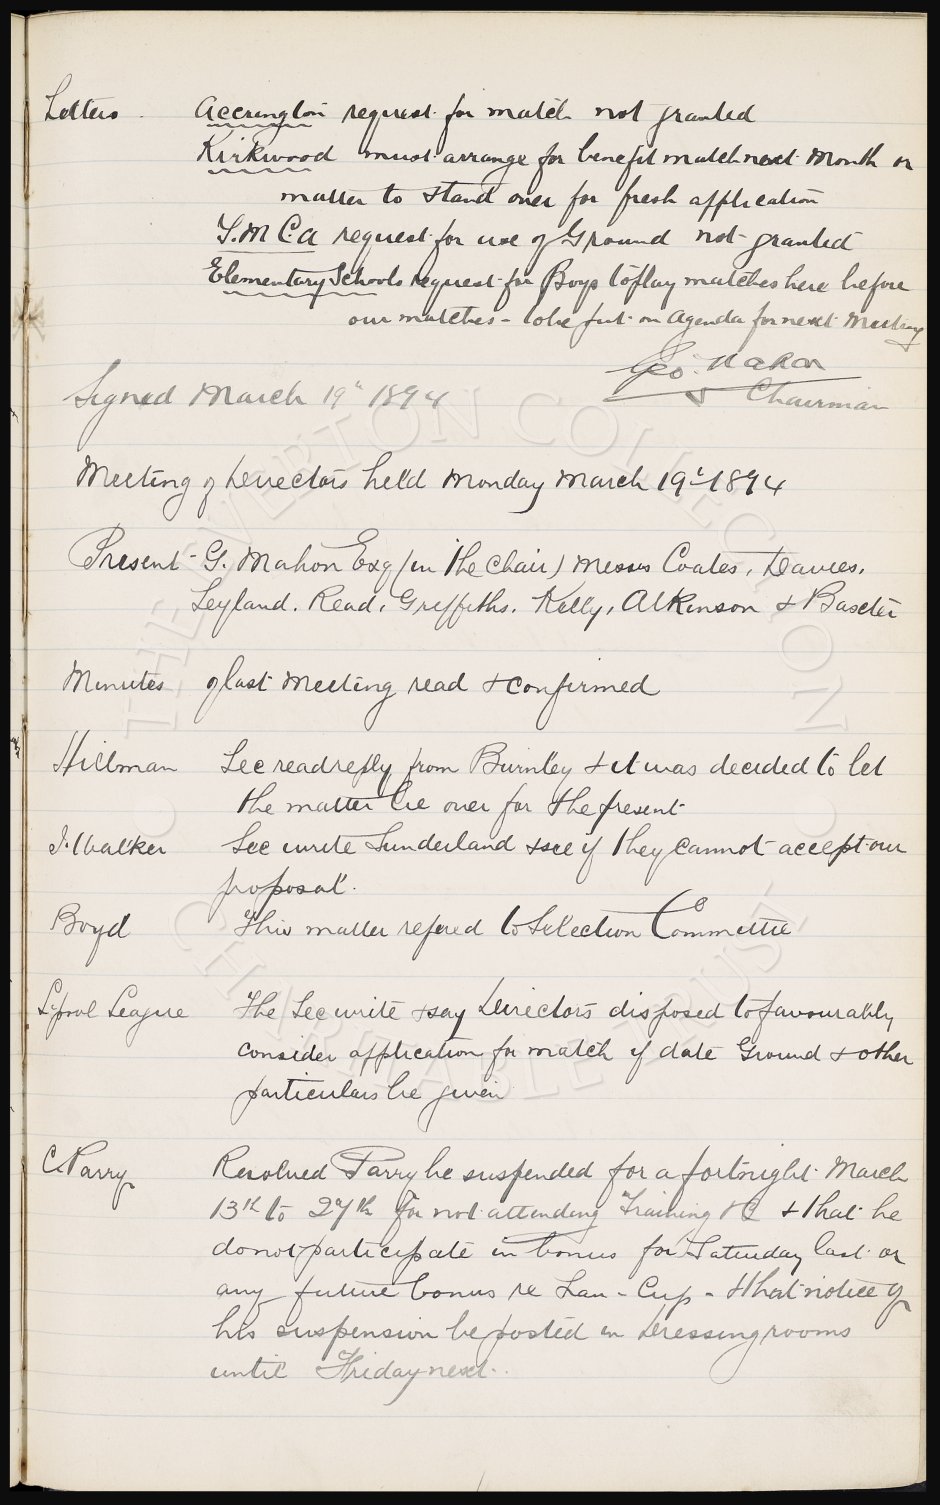 Letters. Accrington request for match not granted
Kirkwood must arrange for benefit match next month or
matter to stand over for fresh application
Y.M.C.A request for use of Ground not granted
Elementary Schools request for Boys to play matches here before
our matches - to be put on agenda for next Meeting
Geo. Mahon
Signed March 19th 1894
Chairman
Meeting of Directors held Monday March 19th 1894
Present - G. Mahon Esq (in the chair) Messrs Coates, Davies,
Leyland, Read, Griffiths, Kelly, Atkinson & Baxter
Minutes of last Meeting read & confirmed
Hillman Sec read reply from Burnley & it was decided to let
the matter lie over for the present
J. Walker Sec write Sunderland & see if they cannot accept our
proposal.
Boyd This matter refered to Selection Committee
L'pool League The Sec write & say Directors disposed to favourably
consider application for match if date Ground & other
particulars be given
C. Parry Resolved Parry be suspended for a fortnight March
13th to 27th for not attending Training &c & that he
do not participate in bonus for Saturday last or
any future bonus re Lan - Cup - & that notice of
his suspension be posted in Dressing rooms
until Friday next.
THE EVERTON COLLECTION
CHARITABLE TRUST